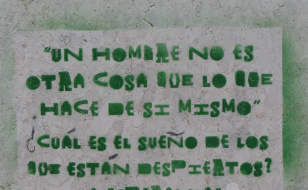 "UN HOMBRE NO ES
OTRA COSA QUE LO QUE
HACE DE SI MISMO"
¿CUÁL ES EL SUEÑO DE LOS
QUE ESTÁN DESPIERTOS?